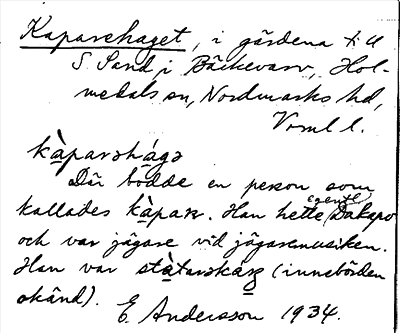 Kaparehaget, i gårdena till
S. Sand i Bäckevarv, Hol-
medals sn, Nordmarks hd,
Vrml l.
kàparəhá̱gə
Där bodde en person som
kallades kà̱par. Han hette Egentl Dakapo
och var jägare vid jägaremusiken.
Han var stà̱tarəkar (innebörden
okänd).
E. Andersson 1934.